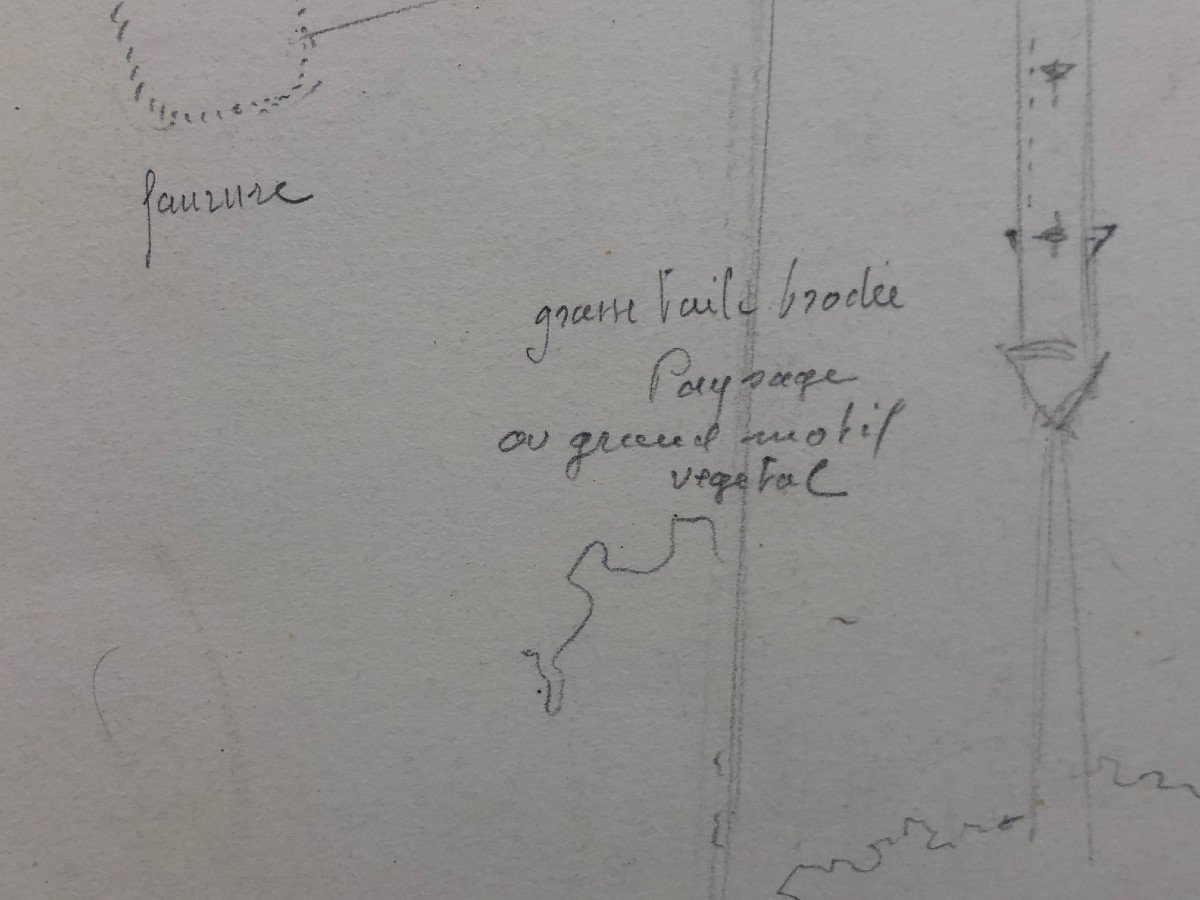 fourrure
grosse toile brodée
Paysage
ou grand motif
vegetal